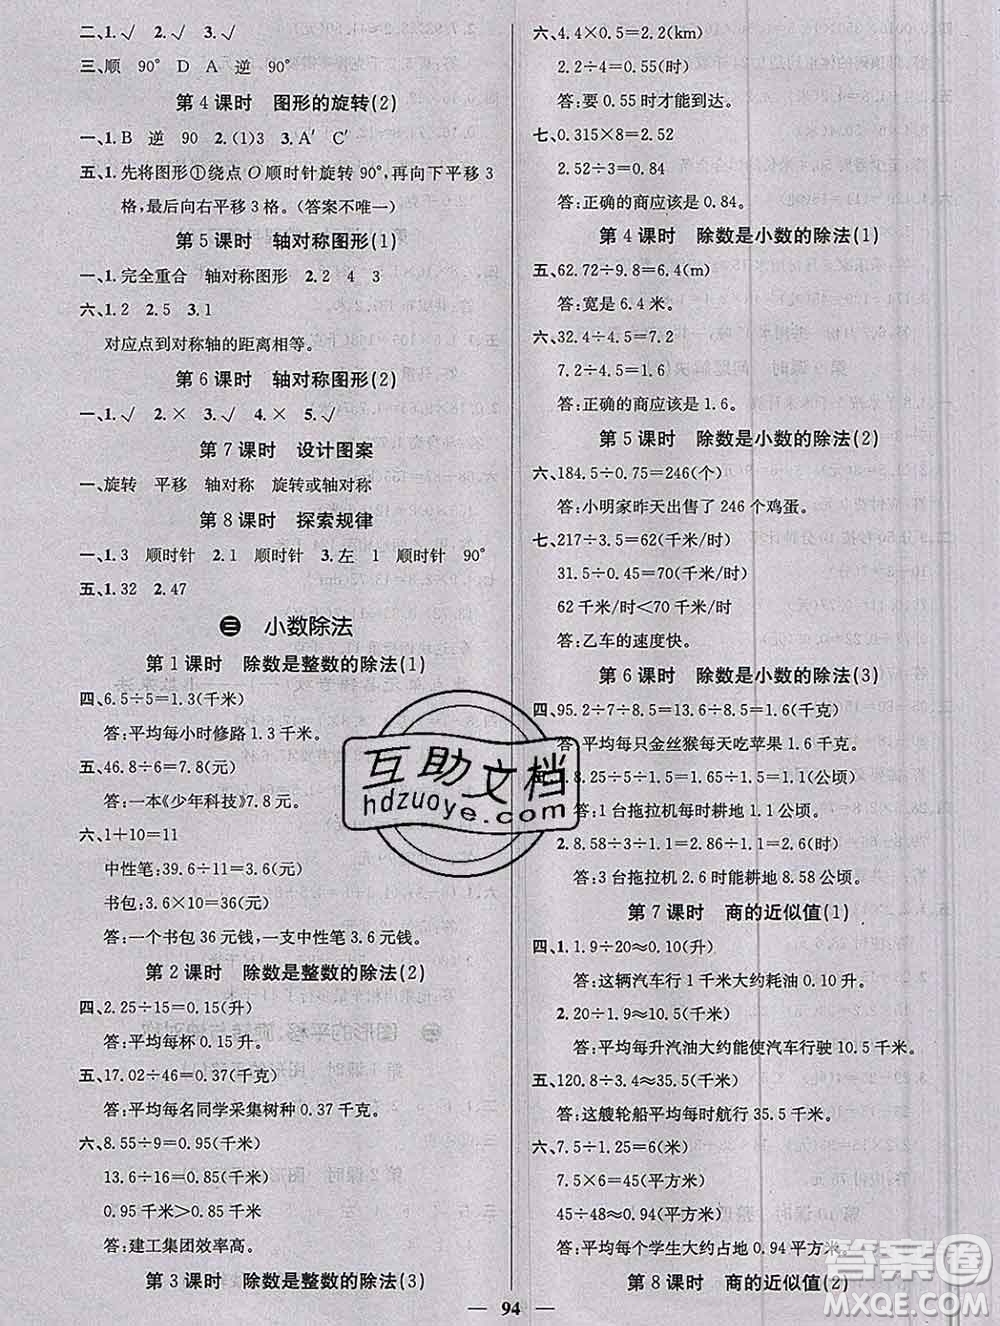 二、1.√ 2.√ 3.√
三、顺 90° D A 逆 90°
第4课时 图形的旋转(2)
一、1.B 逆 90 2.(1)3 3.A′ C′
五、1.先将图形①绕点O顺时针旋转90°,再向下平移3
格,最后向右平移3格。(答案不唯一)
第5课时 轴对称图形(1)
一、1.完全重合 轴对称图形 2.2 4 3
六、1.2 2.5 3.1
对应点到对称轴的距离相等。
第6课时 轴对称图形(2)
一、1.√ 2.× 3.√ 4.× 5.√
第7课时 设计图案
一、旋转 平移 轴对称 旋转或轴对称
第8课时 探索规律
一、1.3 顺时针 2.1 顺时针 3.左 1 顺时针 90°
五、1.32 2.47
三 小数除法
第1课时 除数是整数的除法(1)
四、6.5÷5=1.3(千米)
答:平均每小时修路1.3千米。
五、46.8÷6=7.8(元)
答:一本《少年科技》7.8元。
六、1+10=11
中性笔:39.6÷11=3.6(元)
书包:3.6×10=36(元)
答:一个书包36元钱,一支中性笔3.6元钱。
第2课时 除数是整数的除法(2)
四、2.25÷15=0.15(升)
答:平均每杯0.15升。
五、17.02÷46=0.37(千克)
答:平均每名同学采集树种0.37千克。
六、8.55÷9=0.95(千米)
13.6÷16=0.85(千米)
0.95千米>0.85千米
答:建工集团效率高。
第3课时 除数是整数的除法(3)
六、4.4×0.5=2.2(km)
2.2÷4=0.55(时)
答:要0.55时才能到达。
七、0.315×8=2.52
2.52÷3=0.84
答:正确的商应该是0.84。
第4课时 除数是小数的除法(1)
五、62.72÷9.8=6.4(m)
答:宽是6.4米。
六、32.4÷4.5=7.2
7.2÷4.5=1.6
答:正确的商应该是1.6。
第5课时 除数是小数的除法(2)
六、184.5÷0.75=246(个)
答:小明家昨天出售了246个鸡蛋。
七、217÷3.5=62(千米/时)
31.5÷0.45=70(千米/时)
62千米/时<70千米/时
答:乙车的速度快。
第6课时 除数是小数的除法(3)
四、95.2÷7÷8.5=13.6÷8.5=1.6(千克)
答:平均每只金丝猴每天吃苹果1.6千克。
五、1.8.25÷5÷1.5=1.65÷1.5=1.1(公顷)
答:1台拖拉机每时耕地1.1公顷。
2.8.58÷3÷1.1=2.86÷1.1=2.6(时)
答:3台拖拉机2.6时能耕地8.58公顷。
第7课时 商的近似值(1)
四、1.1.9÷20≈0.10(升)
答:这辆汽车行1千米大约耗油0.10升。
2.20÷1.9≈10.5(千米)
答:平均每升汽油大约能使汽车行驶10.5千米。
五、120.8÷3.4≈35.5(千米)
答:这艘轮船平均每时航行35.5千米。
六、7.5÷1.25=6(米)
7.5×6=45(平方米)
45÷48≈0.94(平方米)
答:平均每个学生大约占地0.94平方米。
第8课时 商的近似值(2)
94
互助文档
hdzuoye.com
答案圈
MXQE.COM